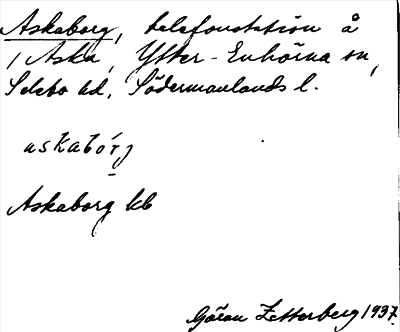 Askaborg, telefonstation å
1 Aska, Ytter-Enhörna sn,
Selebo hd, Södermanlands l.
askabórj
Askaborg kb
Göran Zetterberg 1937.